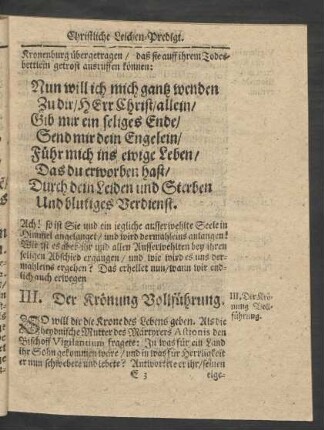 Christliche Leichen-Predigt.
Kronenburg übergetragen / daß sie auff ihrem Todes-
bettlein getrost ausruffen können:
Nun will ich mich gantz wenden
Zu dir / HErr Christ / allein /
Gib mir ein seliges Ende /
Send mir dein Engelein /
Führ mich ins ewige Leben /
Das du erworben hast /
Durch dein Leiden und Sterben
Und blutiges Verdienst.
Ach! so ist Sie und ein jegliche ausserwehlte Seele in
Himmel angelanget / und wird dermahleins anlangen!
Wie ist es aber ihr und allen Ausserwehlten bey ihren
seligen Abschied ergangen / und wie wird es uns der-
mahleins ergehen? Das erhellet nun / wann wir end-
lich auch erwegen
III. Der Krönung Vollführung.
III. Der Krö-
nung Voll-
führung.
SO will dir die Krone des Lebens geben. Als die
heydnische Mutter des Märtyrers Albonis den
Bischoff Vigilantium fragete: In was für ein Land
ihr Sohn gekommen wäre / und in was für Herrligkeit
er nun schwebete und lebete? Antwortete er ihr / seinen
E 3
eige-